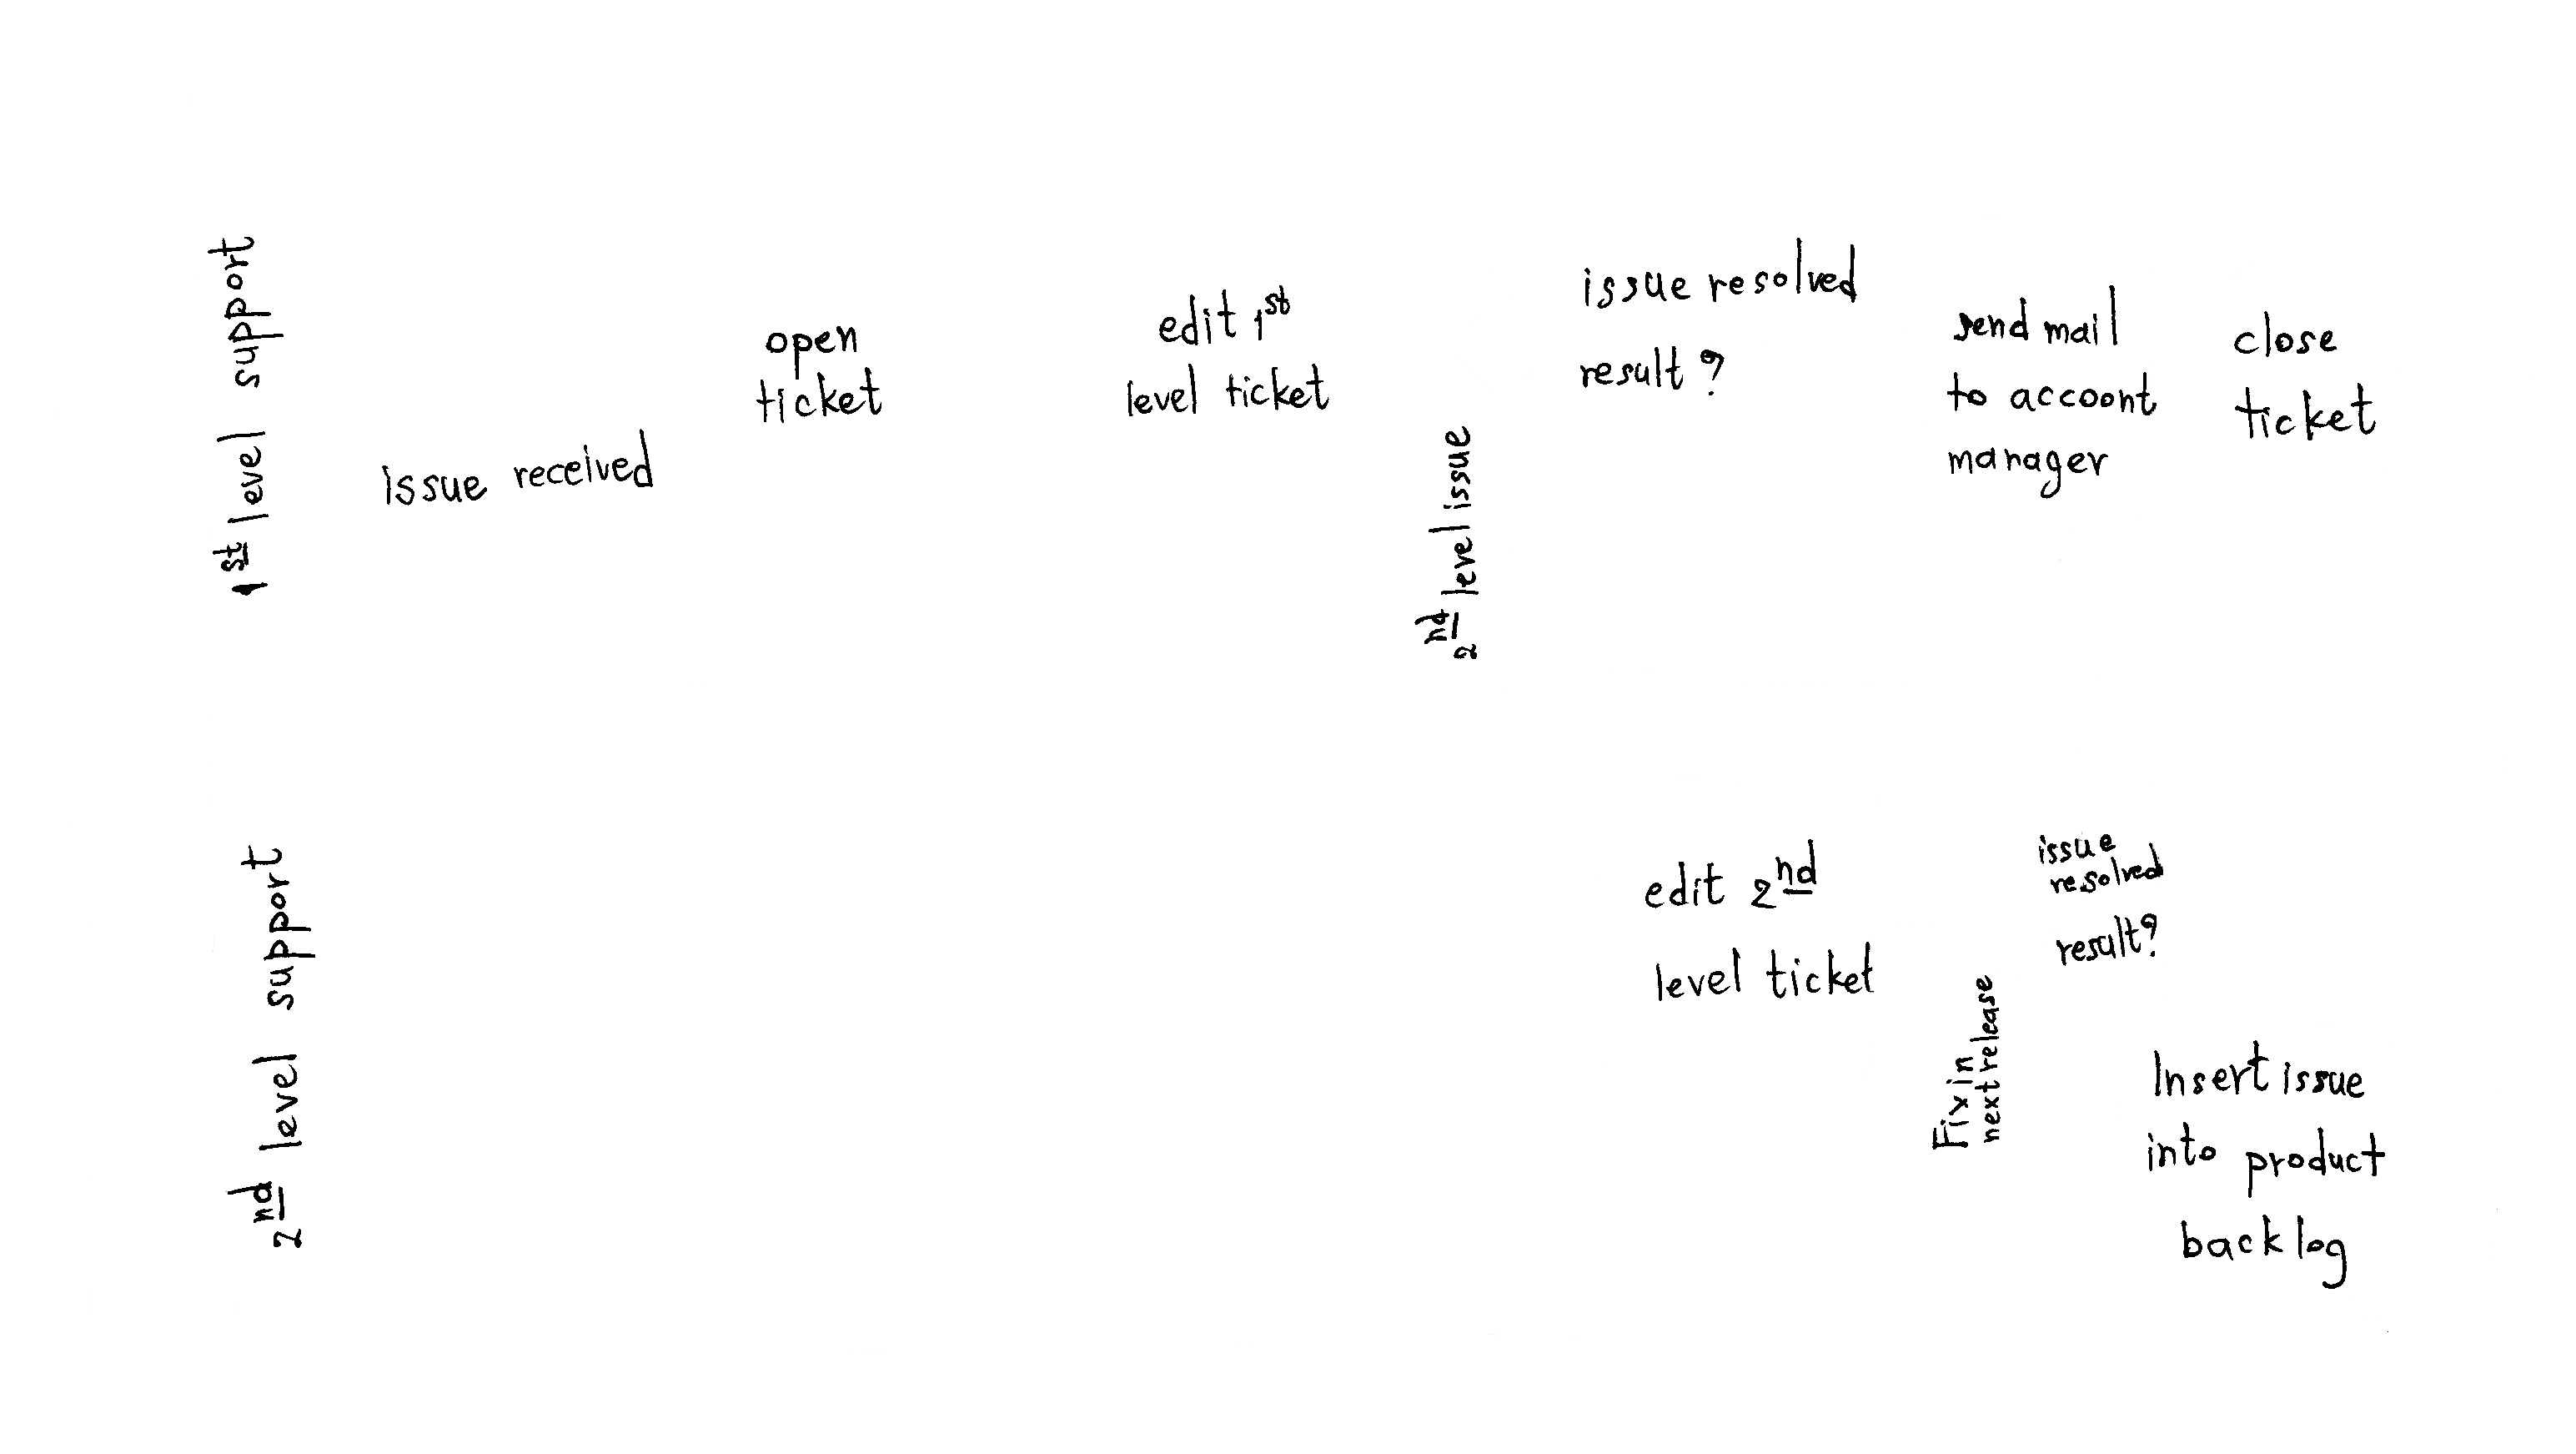 1st level support
issue received
open
ticket
edit 1st
level ticket
2nd level issue
issue resolved
result?
send mail
to accoont
manager
close
ticket
2nd level support
edit 2nd
level ticket
Fix in
next release
issue
resolved
result?
Insert issue
into product
backlog